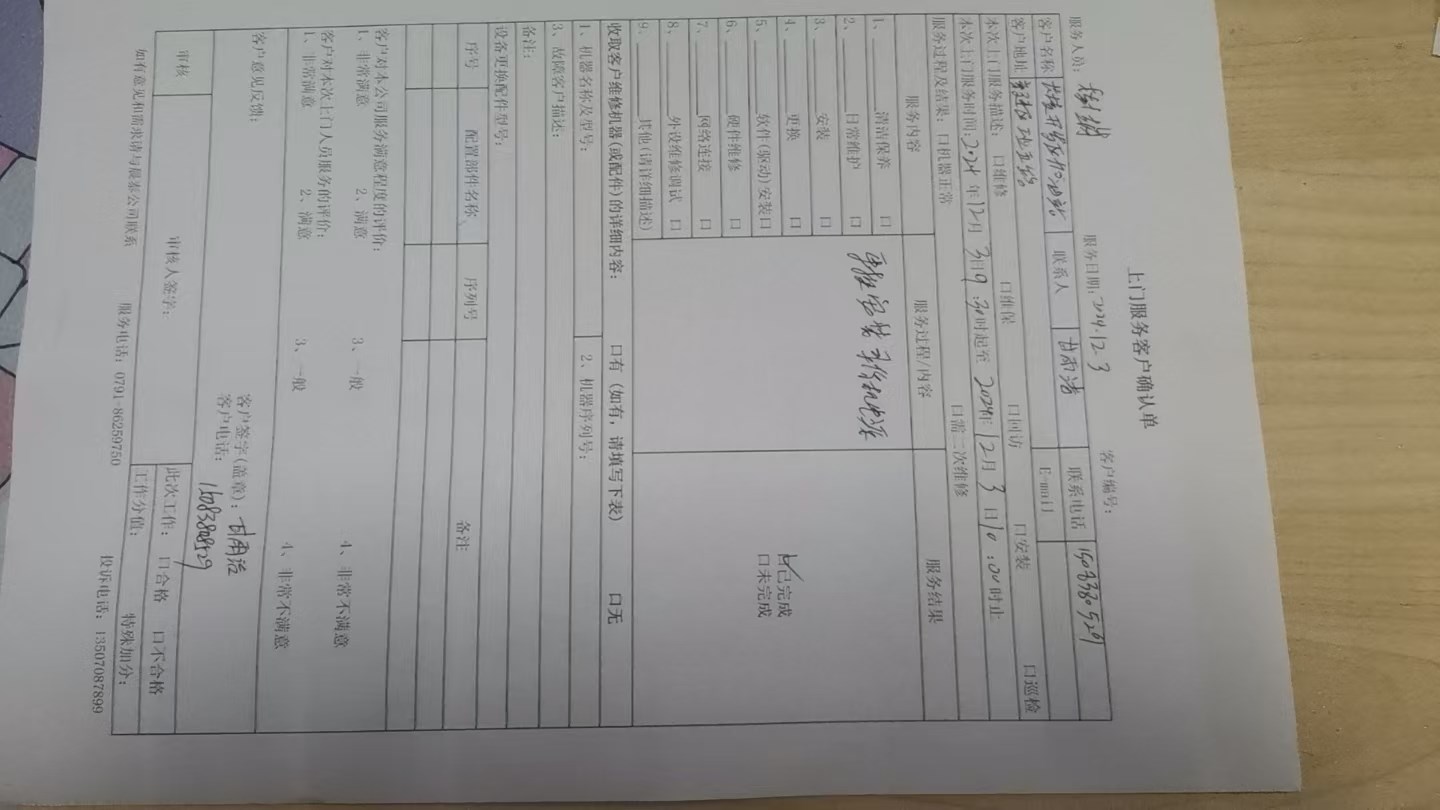 上门服务客户确认单
客户编号：
服务人员：
服务日期：2024.12.3
客户名称
联系人 甘雨浩
联系电话 15083805291
客户地址
E-mail
本次上门服务描述： 口维修 口维保 口回访 口安装 口巡检
本次上门服务时间：2024 年 12月 3日 9：30时起至 2024年 12月 3 日 10：00时止
服务过程及结果：口机器正常 口需二次维修
服务内容 服务过程/内容 服务结果
1、 清洁保养 口
2、 日常维护 口
3、 安装 口
4、 更换 口
5、 软件（驱动）安装口
6、 硬件维修 口
7、 网络连接 口
8、 外设维修调试 口
9、 其他（请详细描述）
安装
口已完成
口未完成
收取客户维修机器（或配件）的详细内容： 口有（如有，请填写下表） 口无
1、机器名称及型号： 2、机器序列号：
3、故障客户描述：
备注：
设备更换配件型号：
序号 配置部件名称 序列号 备注
客户对本公司服务满意程度的评价：
1、非常满意 2、满意 3、一般 4、非常不满意
客户对本次上门人员服务的评价：
1、非常满意 2、满意 3、一般 4、非常不满意
客户意见反馈：
客户签字（盖章）：甘雨浩
客户电话：
审核 审核人签字： 此次工作： 口合格 口不合格
工作分值： 特殊加分：
如有意见和需求请与晨泰公司联系 服务电话：0791-86259750 投诉电话：13507087899